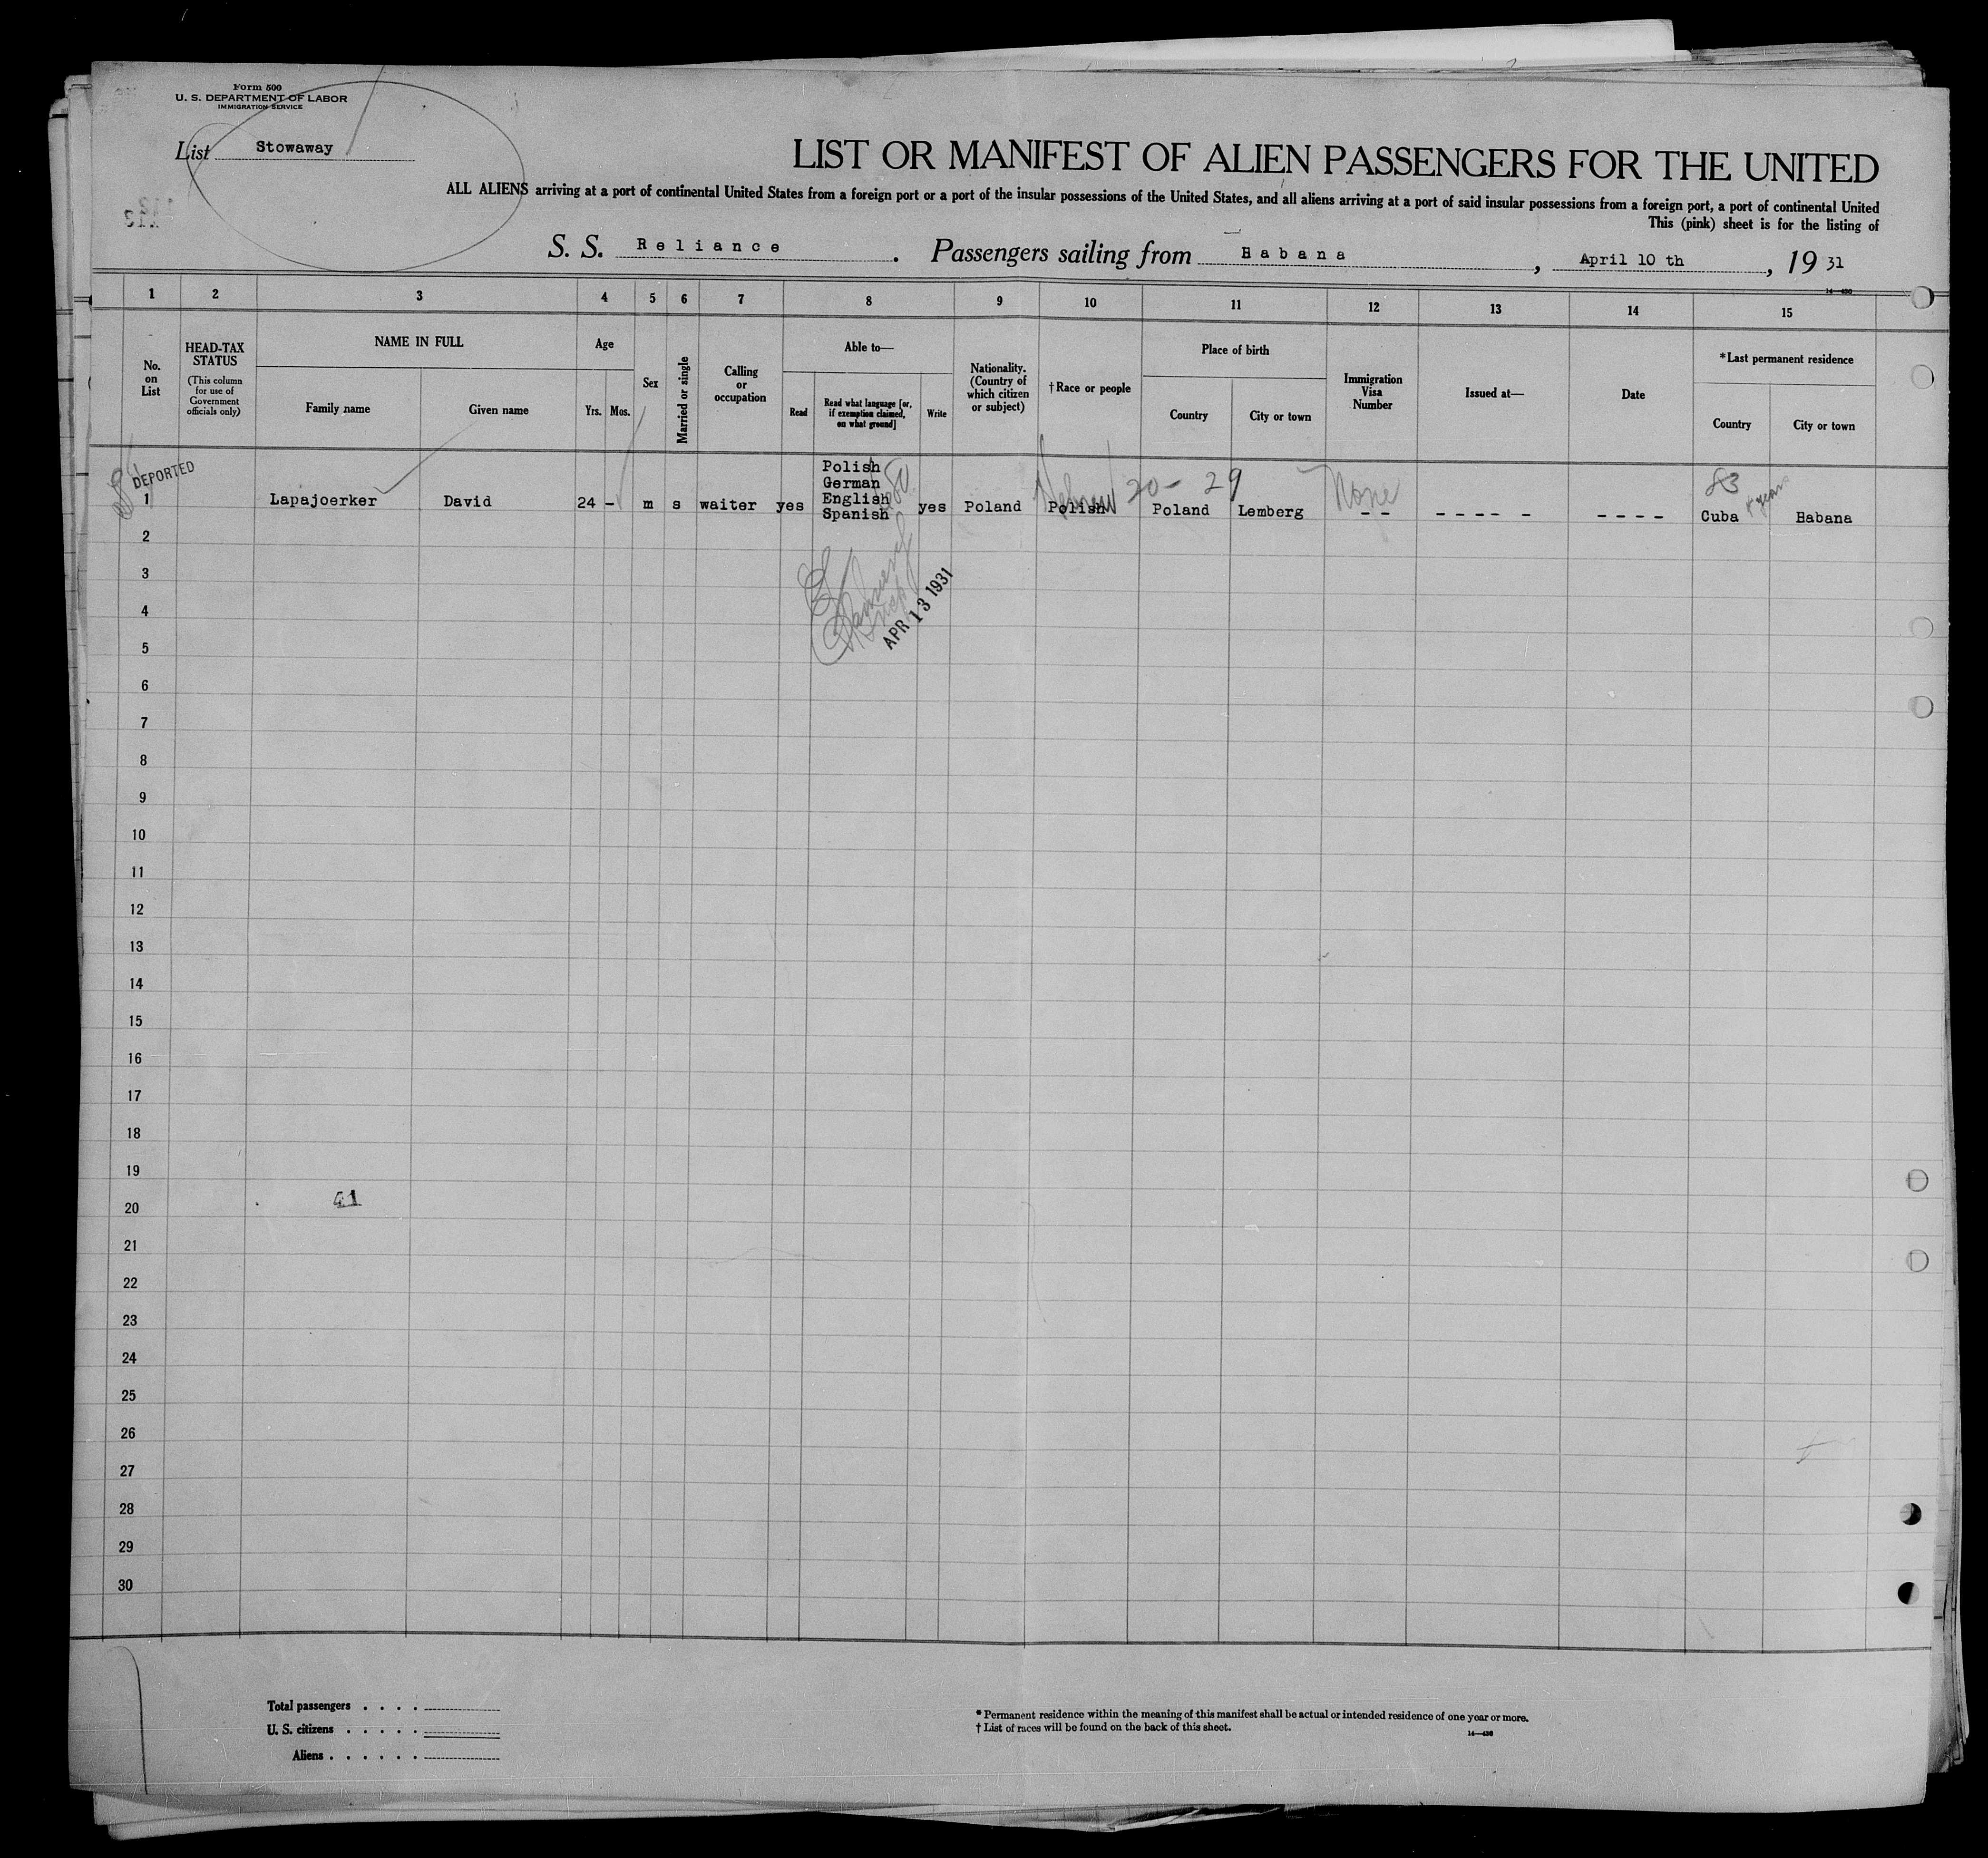 Form 500
U. S. DEPARTMENT OF LABOR
IMMIGRATION SERVICE
List Stowaway
LIST OR MANIFEST OF ALIEN PASSENGERS FOR THE UNITED
ALL ALIENS arriving at a port of continental United States from a foreign port or a port of the insular possessions of the United States, and all aliens arriving at a port of said insular possessions from a foreign port, a port of continental United
This (pink) sheet is for the listing of
S. S. Reliance. Passengers sailing from Habana, April 10 th, 19 31
14—430
1 2 3 4 5 6 7 8 9 10 11 12 13 14 15
No. on List
HEAD-TAX STATUS
(This column for use of Government officials only)
NAME IN FULL
Family name Given name
Age
Yrs. Mos.
Sex
Married or single
Calling or occupation
Able to—
Read
Read what language [or, if exemption claimed, on what ground]
Write
Nationality. (Country of which citizen or subject)
†Race or people
Place of birth
Country City or town
Immigration Visa Number
Issued at—
Date
*Last permanent residence
Country City or town
DEPORTED
1 Lapajoerker David 24 - m s waiter yes Polish German English Spanish yes Poland Polish Hebrew Poland Lemberg None - - - - - - - - - - - Cuba Habana
20 - 29
83
4 years
2
3
APR 13 1931
4
5
6
7
8
9
10
11
12
13
14
15
16
17
18
19
41
20
21
22
23
24
25
26
27
28
29
30
Total passengers . . . .
U. S. citizens . . . . .
Aliens . . . . . .
* Permanent residence within the meaning of this manifest shall be actual or intended residence of one year or more.
† List of races will be found on the back of this sheet.
14—430